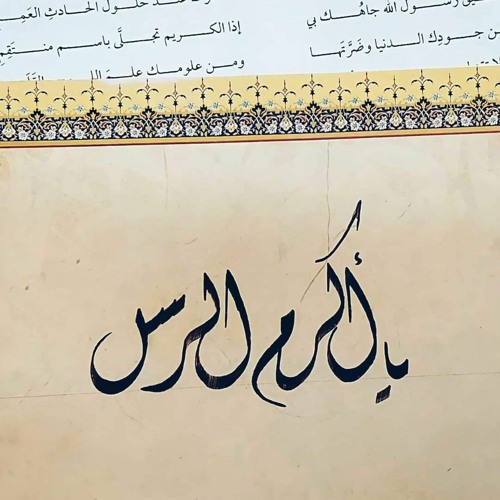 عند حلول الحادثِ العَمِـ
رســول الله جاهُــك بي
إذا الكريم تجلَّى باسم منتقِمِ
ـن جودِك الدنيا وضَرَّتَها
ومن علومك علمَ
يا أكرم الرسل